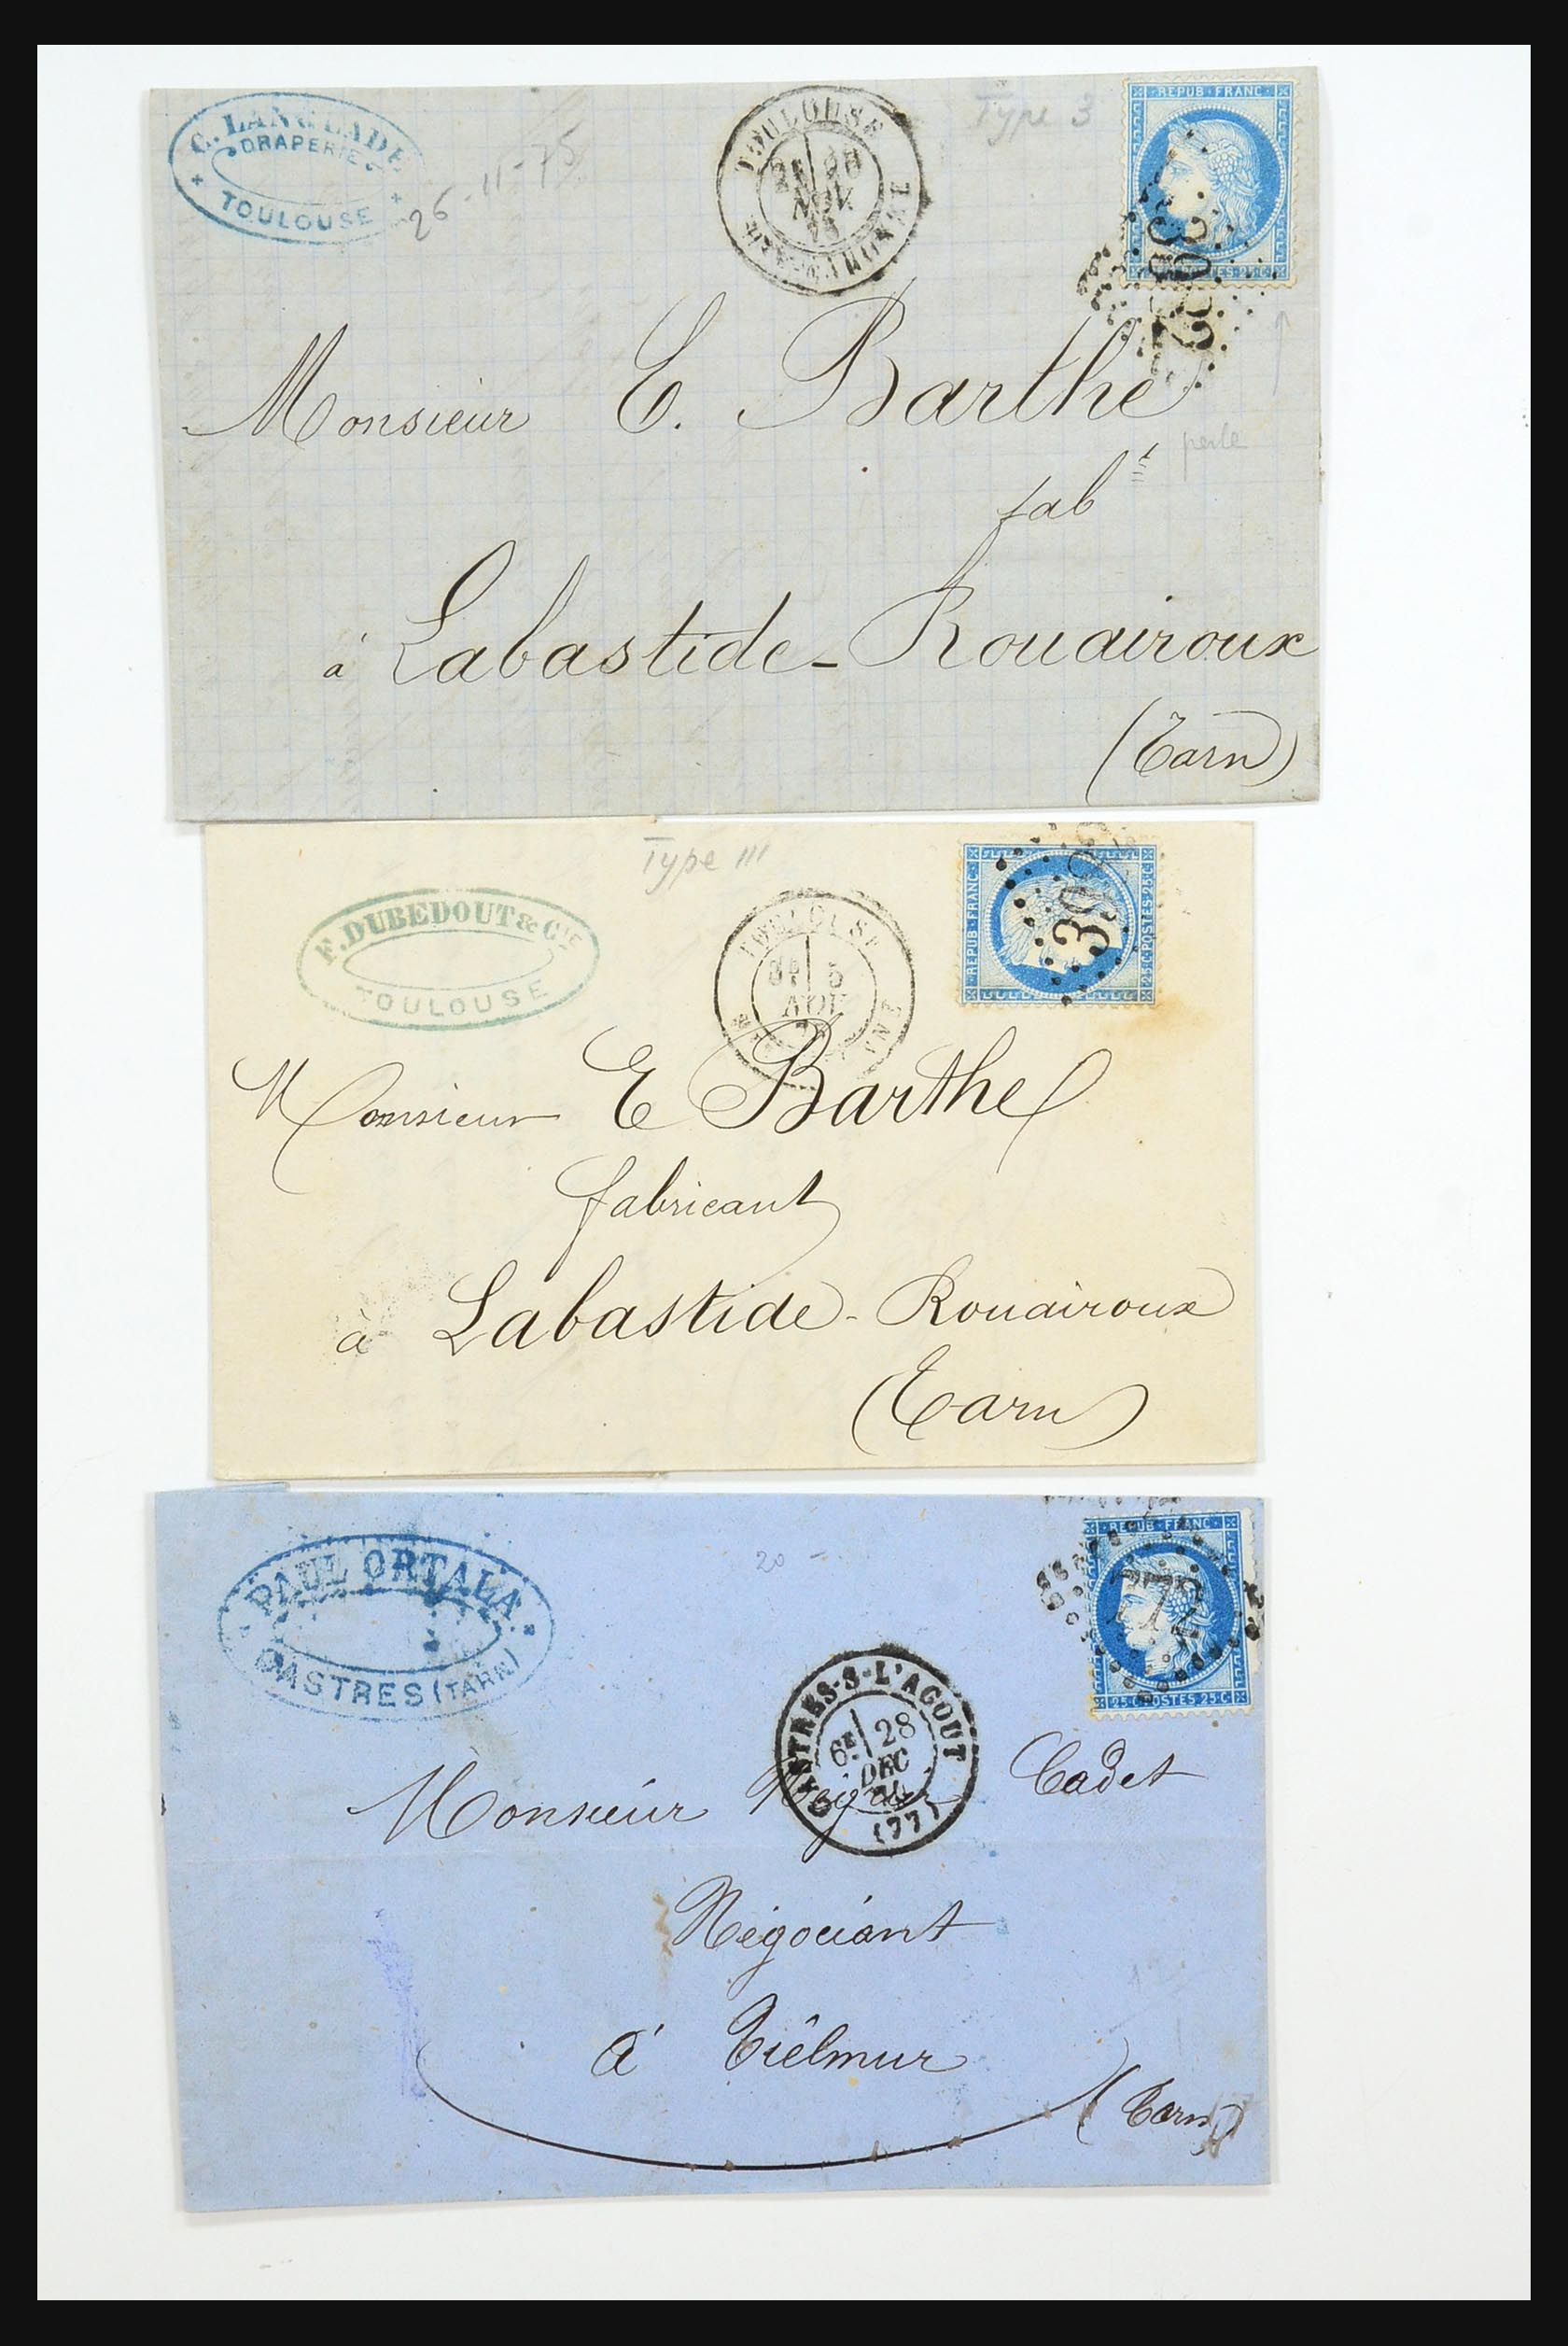 C. LANGLADE
DRAPERIE
TOULOUSE
26-11-75
TOULOUSE
NOV
75
Type 3
REPUB FRANC
POSTES 25 C
3982
Monsieur E. Barthe
perle
fabt
à Labastide-Rouairoux
(Tarn)
Type III
F. DUBEDOUT & CIE
TOULOUSE
TOULOUSE
5
AOU
REPUB FRANC
25 C POSTES 25 C
398
Monsieur E Barthe
fabricant
à Labastide-Rouairoux
(Tarn)
20 -
PAUL ORTALA
CASTRES (TARN)
CASTRES-S-L'AGOUT
6E 28
DEC
74
(77)
REPUB FRANC
772
25 C POSTES 25 C
Monsieur Cadet
Négociant
à Viêlmur
(Tarn)